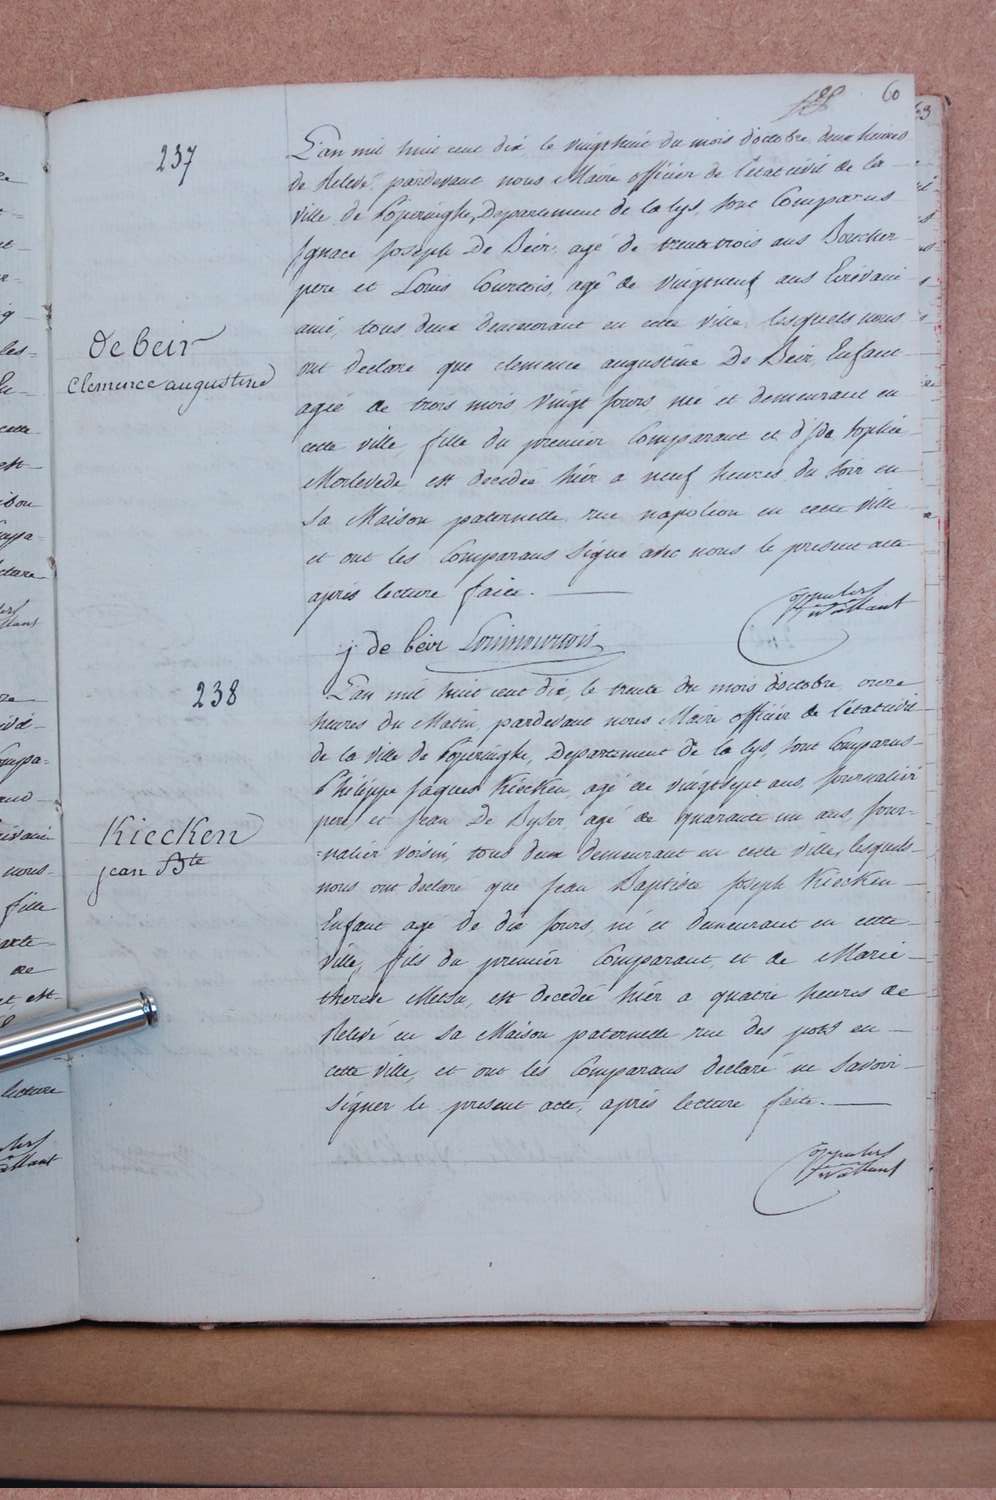 60
63
237
L'an mil huit cent dix, le vingthuit du mois d'octobre deux heures
de Relevé, pardevant nous Maire officier de l'état civil de la
ville de Poperinghe, Departement de la lys, sont Comparus
Ignace Joseph De Beir, agé de trentetrois ans Boucher
pere et Louis Courtois, agé de vingtneuf ans Ecrivain
ami, tous deux demeurant en cette ville, lesquels nous
ont declaré que clemence augustine De Beir, Enfant
agée de trois mois, vingt Jours, née et demeurant en
cette ville, fille du premier Comparant et d'Ide Sophie
Morlevede est decedée hier a neuf heures du Soir en
Sa Maison paternelle rue napoleon en cette ville
et ont les Comparans Signé avec nous le present acte
après lecture faite.
De beir
Clemence augustine
j de beir Louis courtois
238
L'an mil huit cent dix, le trente du mois d'octobre, onze
heures du Matin, pardevant nous Maire officier de l'état civil
de la ville de Poperinghe, Departement de la lys, sont Comparus
Philippe Jaques Kiecken, agé de vingtsept ans, Journalier
pere, et Jean De Byser, agé de quarante un ans, Jour-
=nalier voisin, tous deux demeurant en cette ville, lesquels
nous ont declaré que Jean Baptiste Joseph Kiecken
Enfant agé de dix Jours, né et demeurant en cette
ville, fils du premier Comparant et de Marie
therese Metsu, est decedé hier a quatre heures de
Relevé en Sa Maison paternelle rue des pots en
cette ville, et ont les Comparans declaré ne Savoir
Signer le present acte, après lecture faite.
Kiecken
jean Bte